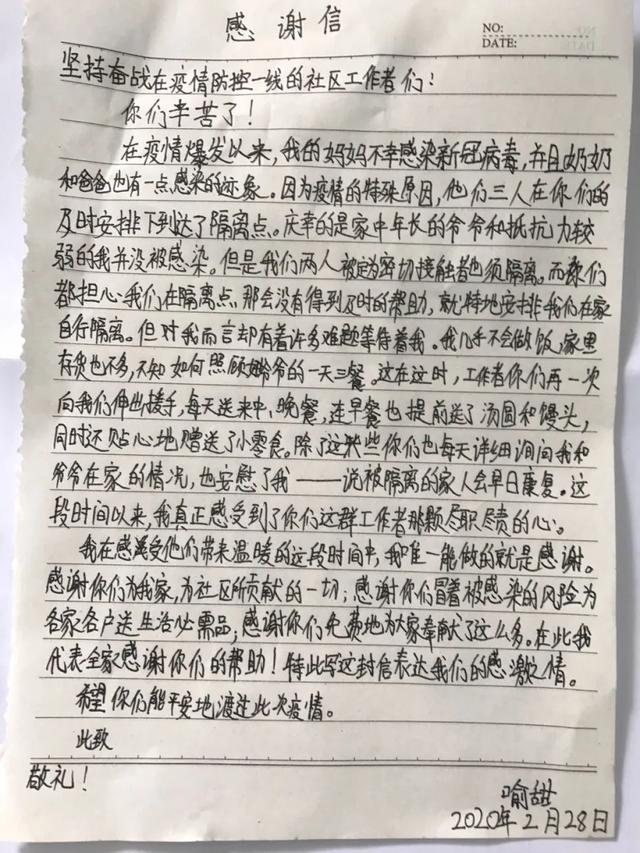 感谢信
NO:
DATE:
坚持奋战在疫情防控一线的社区工作者们：
你们辛苦了！
在疫情爆发以来，我的妈妈不幸感染新冠病毒，并且奶奶
和爸爸也有一点感染的迹象。因为疫情的特殊原因，他们三人在你们的
及时安排下到达了隔离点。庆幸的是家中年长的爷爷和抵抗力较
弱的我并没被感染。但是我们两人被定为密切接触者也须隔离。而你们
都担心我们在隔离点那会没有得到及时的帮助，就特地安排我们在家
自行隔离。但对我而言却有着许多难题等待着我。我几乎不会做饭，家里
存货也不多，不知如何照顾爷爷的一天三餐。这在这时，工作者你们再一次
向我们伸出援手，每天送来中，晚餐，连早餐也提前送了汤圆和馒头，
同时还贴心地赠送了小零食。除了这些你们也每天详细询问我和
爷爷在家的情况，也安慰了我——说被隔离的家人会早日康复。这
段时间以来，我真正感受到了你们这群工作者那颗尽职尽责的心。
我在感受他们带来温暖的这段时间中，我唯一能做的就是感谢。
感谢你们为我家，为社区所贡献的一切；感谢你们冒着被感染的风险为
各家各户送生活必需品；感谢你们免费地为大家奉献了这么多。在此我
代表全家感谢你们的帮助！特此写这封信表达我们的感激之情。
希望你们能平安地渡过此次疫情。
此致
敬礼！
喻甜
2020年2月28日